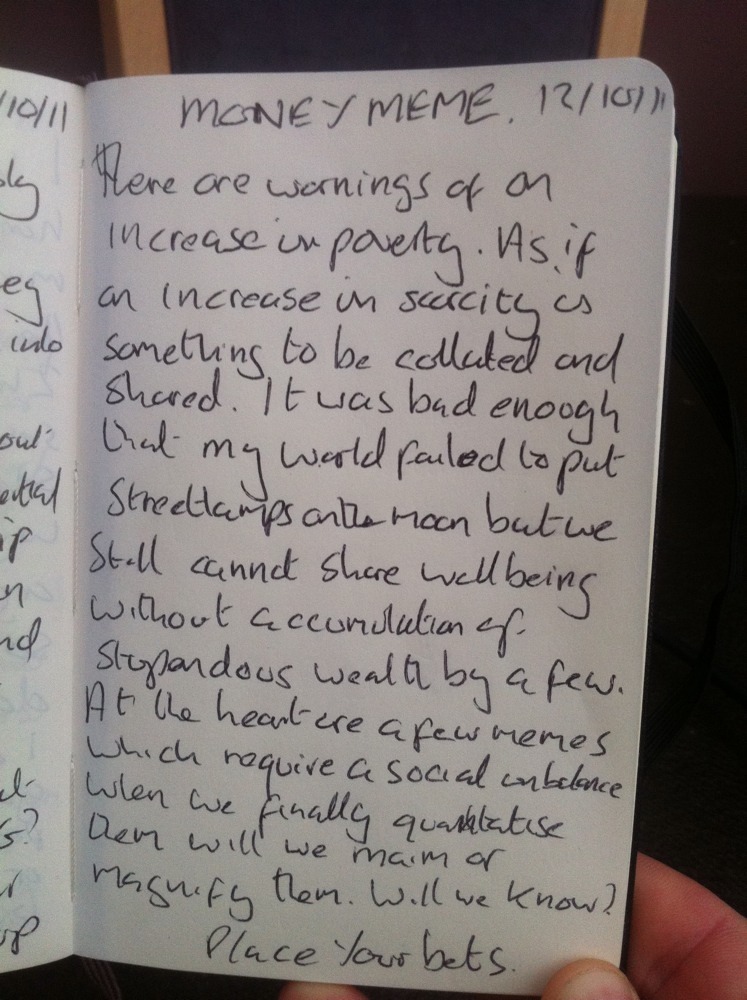 /10/11
eg
into
out
ential
ip
nd
MONEY MEME. 12/10/11
There are warnings of an
increase in poverty. As if
an increase in scarcity is
something to be collated and
shared. It was bad enough
that my world failed to put
Streetlamps on the moon but we
Still cannot share wellbeing
without accumulation of
stupandous wealth by a few.
At the heart are a few memes
which require a social imbalance
when we finally quantatise
them will we maim or
magnify them. Will we know?
Place Your bets.